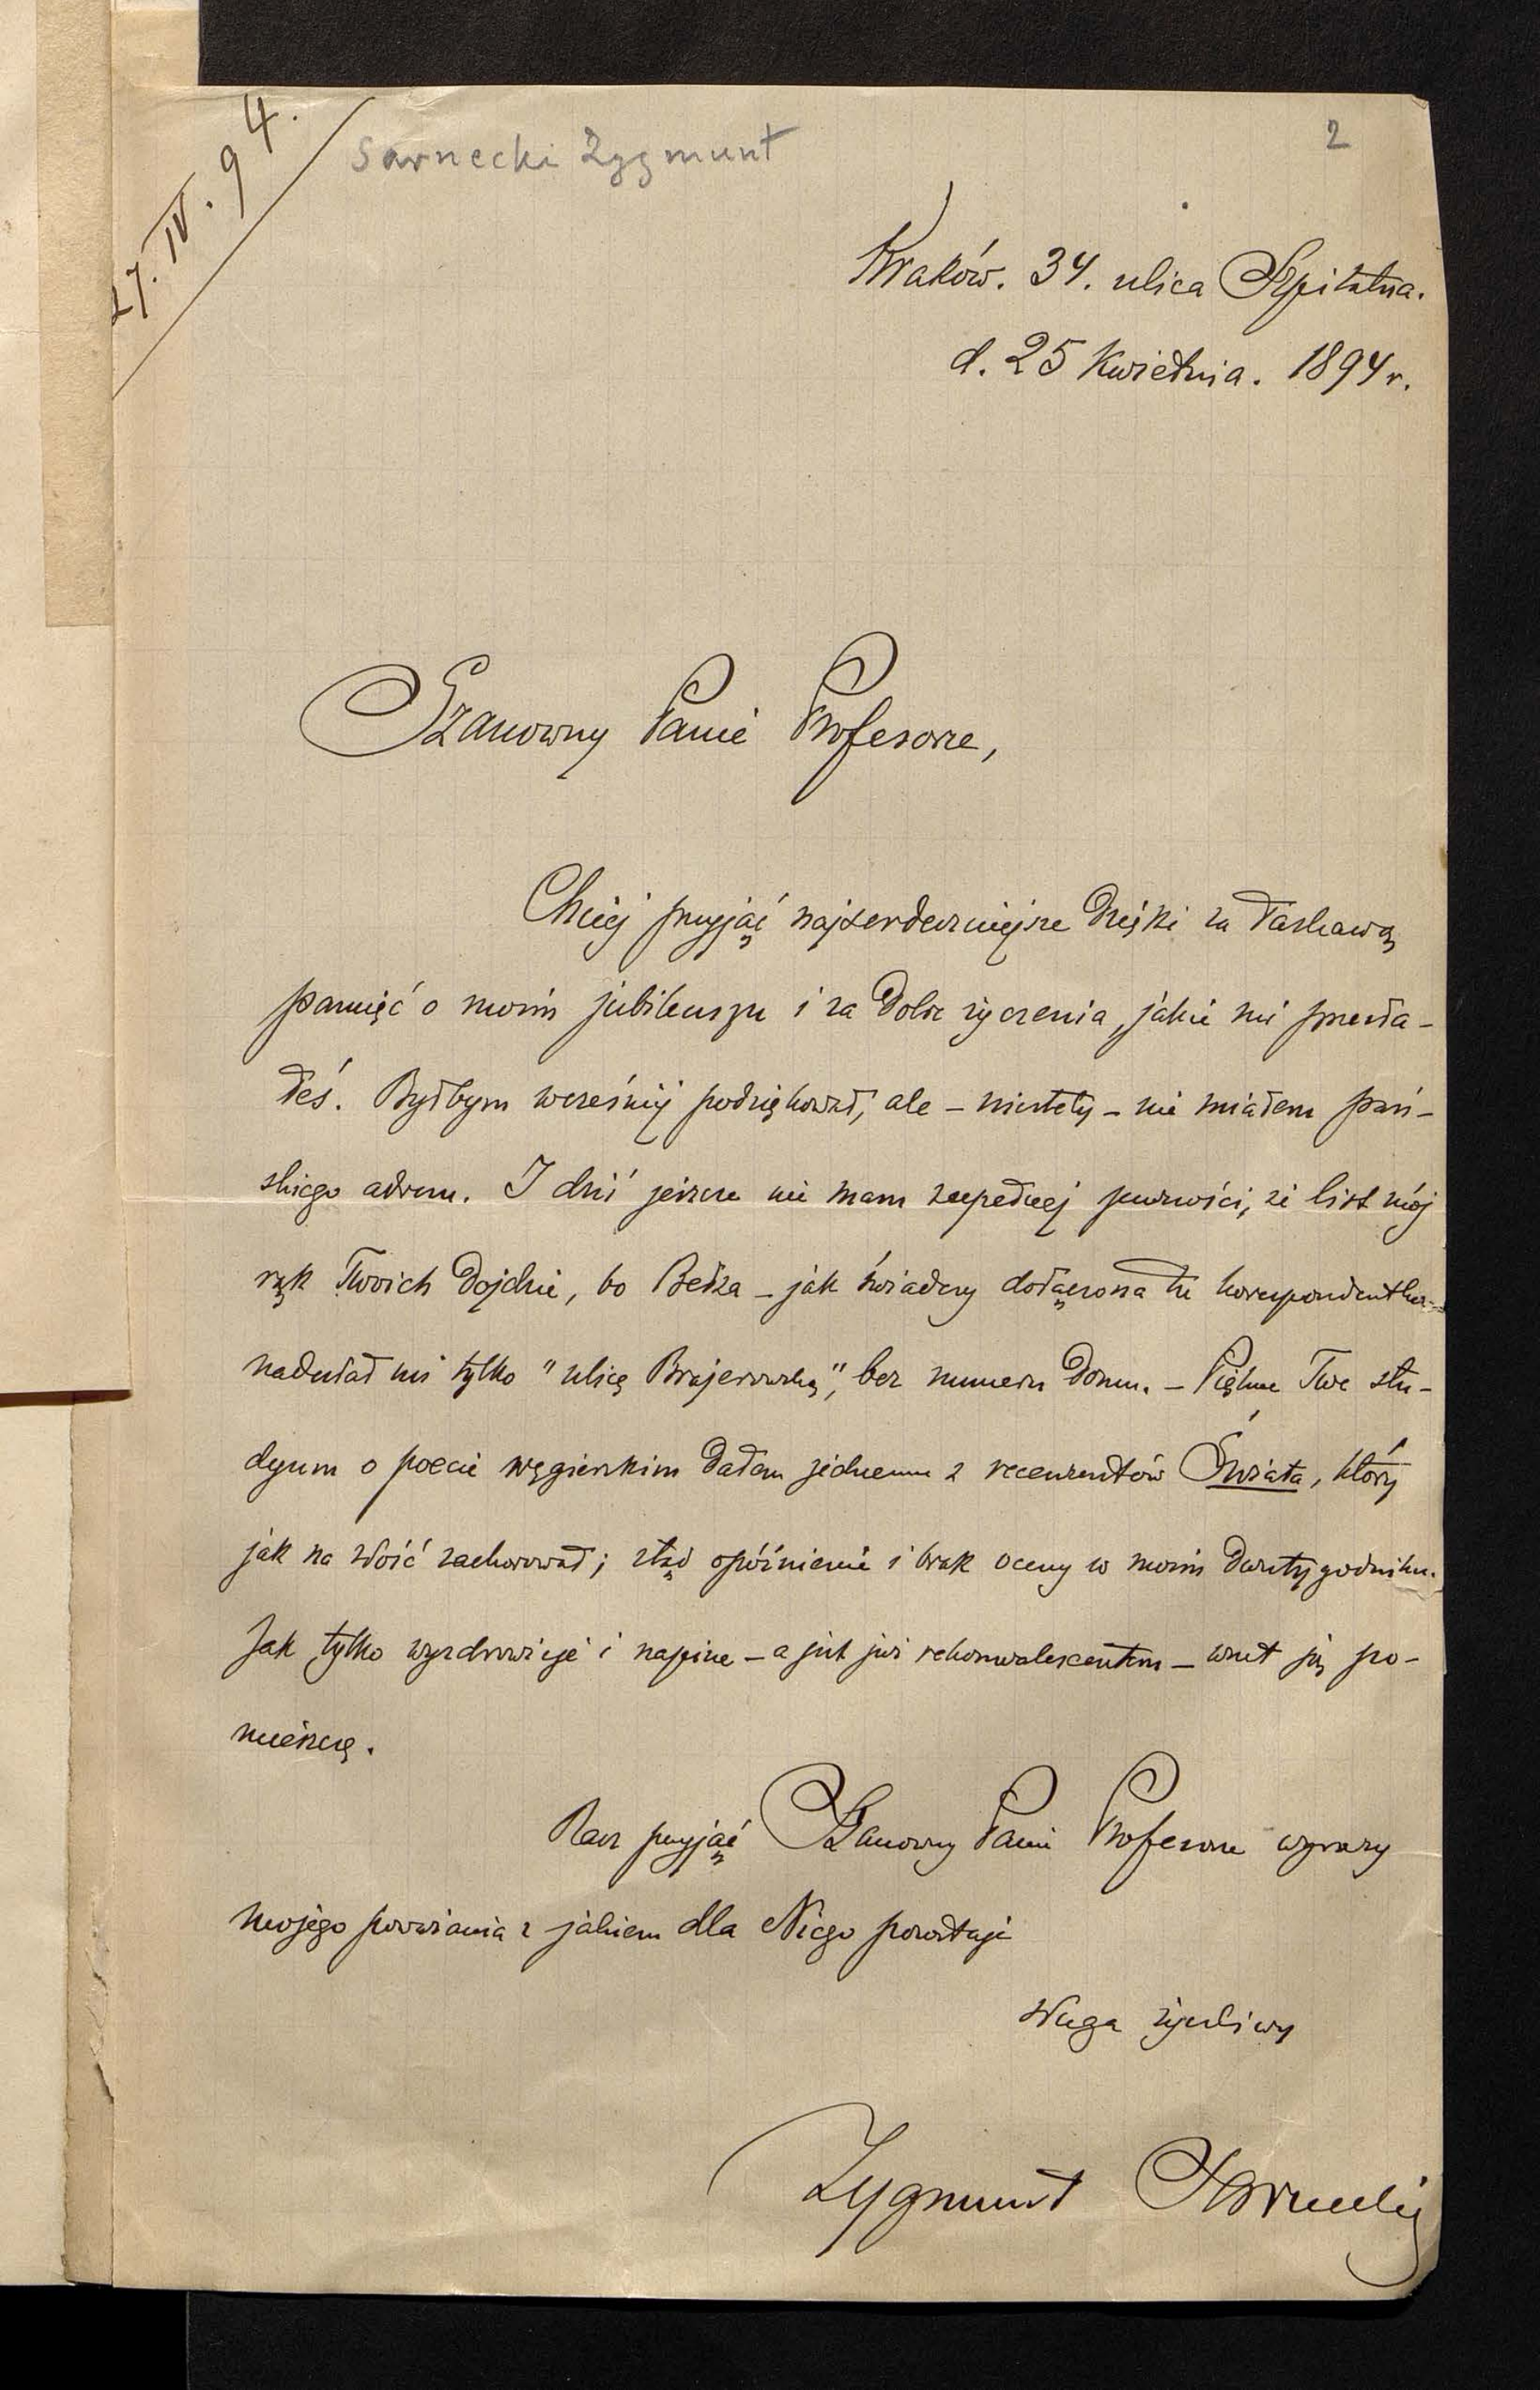 27. IV. 94.
Sarnecki Zygmunt
2
Kraków. 34. ulica Szpitalna.
d. 25 Kwietnia. 1894 r.
Szanowny Panie Profesorze,
Chciej przyjąć najserdeczniejsze dzięki za łaskawą
pamięć o moim jubileuszu i za dobre życzenia, jakie mi przesła-
łeś. Byłbym wcześniej podziękował, ale – niestety – nie miałem pań-
skiego adresu. I dziś jeszcze nie mam zupełnej pewności, że list mój
rąk Twoich dojdzie, bo Bełza – jak świadczy dołączona tu korespondentka –
nadesłał mi tylko "ulicę Brajerowską", bez numeru domu. – Piękne Twe stu-
dyum o poecie węgierskim dałem jednemu z recenzentów Świata, który
jak na złość zachorował; stąd opóźnienie i brak oceny w moim dwutygodniku.
Jak tylko wyzdrowieje i napisze – a jest już rekonwalescentem – wnet ją po-
mieszczę.
Racz przyjąć Szanowny Panie Profesorze wyrazy
mojego poważania z jakiem dla Niego pozostaję
sługa życzliwy
Zygmunt Sarnecki